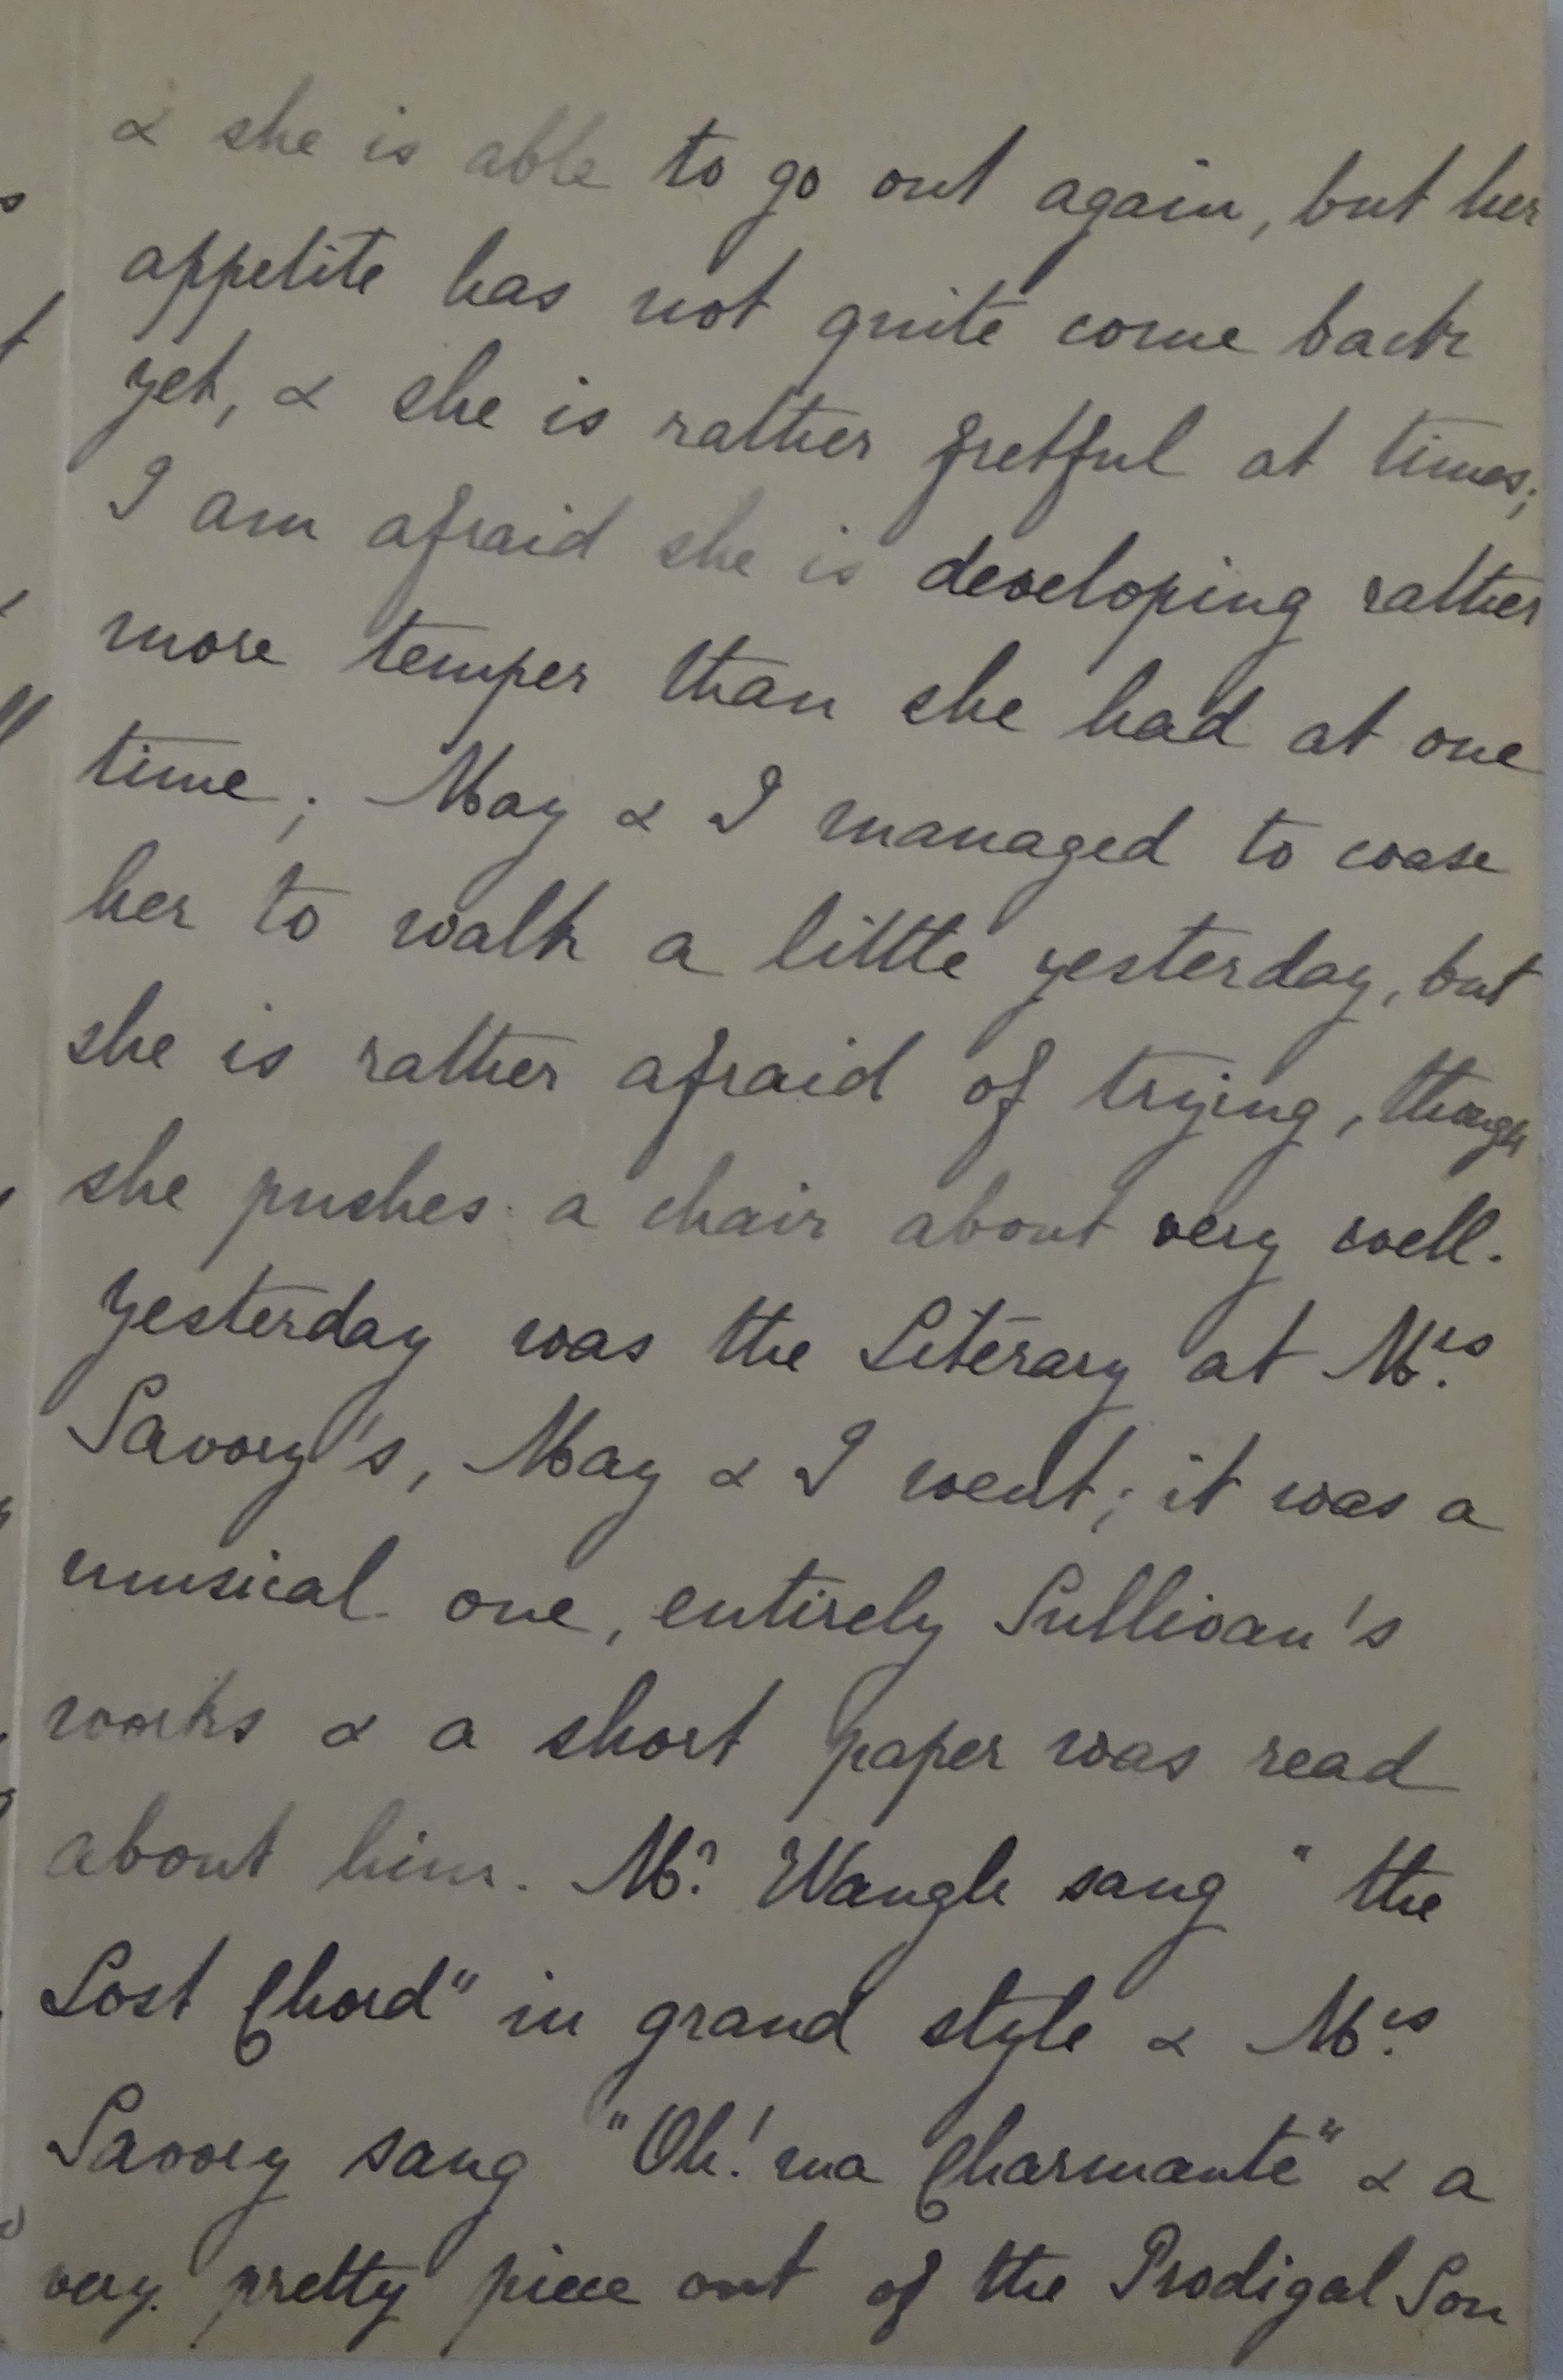 & she is able to go out again, but her
appetite has not quite come back
yet, & she is rather fretful at times;
I am afraid she is developing rather
more temper than she had at one
time; May & I managed to coase
her to walk a little yesterday, but
she is rather afraid of trying, though
she pushes a chair about very well.
Yesterday was the Literary at Mrs.
Savory's, May & I went; it was a
musical one, entirely Sullivan's
works & a short paper was read
about him. Mr. Wangle sang "the
Lost Chord" in grand style & Mrs.
Savory sang "Oh! ma Charmante" & a
very pretty piece out of the Prodigal Son